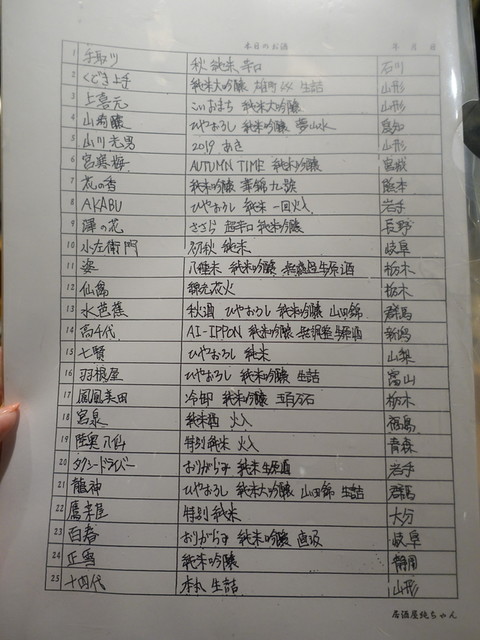 本日のお酒 年 月 日
1 手取川 秋 純米 辛口 石川
2 くどき上手 純米大吟醸 雄町44 生詰 山形
3 上喜元 こいおまち 純米大吟醸 山形
4 ひやおろし 純米吟醸 夢山水 愛知
5 山川光男 2019 あき 山形
6 宮寒梅 AUTUMN TIME 純米吟醸 宮城
7 花の香 純米吟醸 華錦 九號 熊本
8 AKABU ひやおろし 純米 一回火入 岩手
9 澤の花 ささら 超辛口 純米吟醸 長野
10 小左衛門 初秋 純米 岐阜
11 姿 純米吟醸 無濾過生原酒 栃木
12 仙禽 線香花火 栃木
13 水芭蕉 秋酒 ひやおろし 純米吟醸 山田錦 群馬
14 高千代 AI-IPPON 純米吟醸 無調整生原酒 新潟
15 七賢 ひやおろし 純米 山梨
16 羽根屋 ひやおろし 純米吟醸 生詰 富山
17 鳳凰美田 冷卸 純米吟醸 五百万石 栃木
18 宮泉 純米酒 火入 福島
19 陸奥八仙 特別純米 火入 青森
20 タクシードライバー おりがらみ 純米生原酒 岩手
21 龍神 ひやおろし 純米大吟醸 山田錦 生詰 群馬
22 鷹来屋 特別純米 大分
23 百春 おりがらみ 純米吟醸 直汲 岐阜
24 正雪 純米吟醸 静岡
25 十四代 本丸 生詰 山形
居酒屋純ちゃん